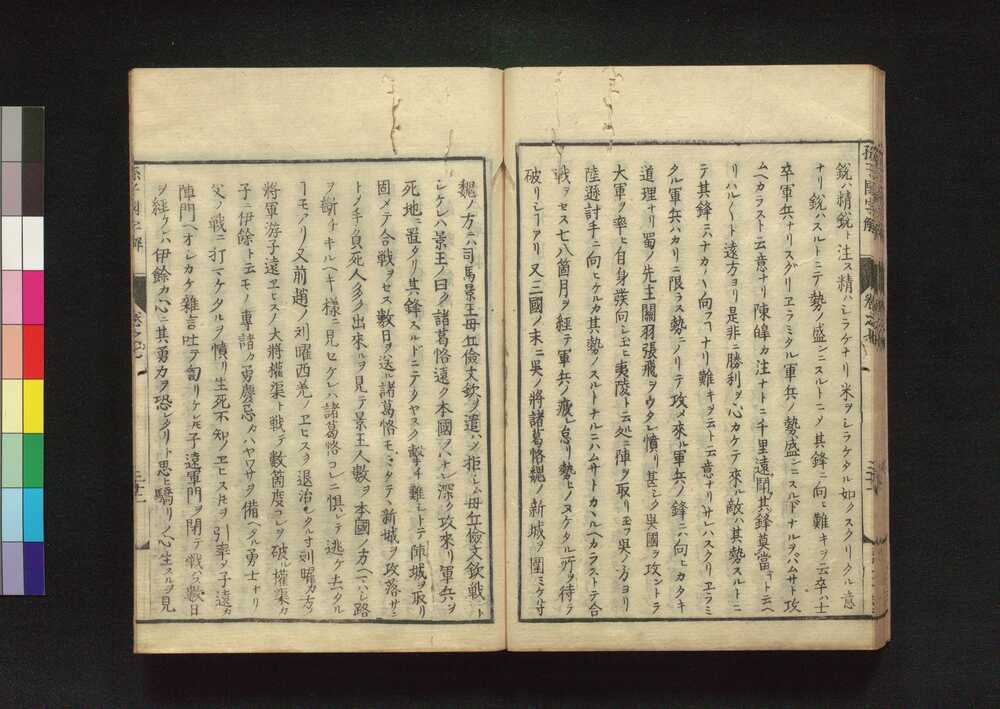 孫子國字解
銳ハ精銳ト注ス精ハシラケナリ米ヲシラケタル如クスクリタル意
ナリ銳ハスルトニテ勢ノ盛ンニスルトニ〆其鋒ニ向ヒ難キヲ云卒ハ士
卒軍兵ナリスグリヱラミタル軍兵ノ勢盛ンニスルドナルヲバムサト攻
ムヘカラスト云意ナリ陳皥カ注ナトニ千里遠鬪其鋒莫當トト云ヘ
リハル〱ト遠方ヨリ是非ニ勝利ヲ心カケテ來ル敵ハ其勢スルトニ
テ其鋒ニナカ〱向フヿナリ難キヲ云ト云意ナリサレハスクリヱラミ
タル軍兵ハカリニ限ラス勢ニノリテ攻メ來ル軍兵ノ鋒ニハ向ヒカタキ
道理ナリ蜀ノ先主關羽張飛ヲウタレ憤リ甚シク吳國ヲ攻ントテ
大軍ヲ率ヒ自身發向シ玉ヒ夷陵ト云処ニ陣ヲ取リ玉フ吳ノ方ヨリ
陸遜討手ニ向ヒケルカ其勢ノスルトナルニハムサトカヽルヘカラストテ合
戰ヲセス七八箇月ヲ經テ軍兵ノ疲レ怠リ勢ヒノヌケタル所ヲ待テ
破リシヿアリ又三國ノ末ニ吳ノ將諸葛恪魏ノ新城ヲ圍ミケルニ
魏ノ方ニハ司馬景王毋丘儉文欽ヲ遣ハ〆拒シム毋丘儉文欽戰ント
シケレハ景王ノ曰ク諸葛恪遠ク本國ヲハナレ深ク攻來リ軍兵ヲ
死地ニ置タリ其鋒スルドニテタヤスク敵對シ難シトテ陣城ヲ取リ
固メテ合戰ヲセス數日ヲ送ル諸葛恪モマタテハ新城ヲ攻落サン
トメ手負死人多ク出來ルヲ見テ景王人數ヲ本國ノ方ヘマハシ路
ヲ斷チキルヘキ樣ニ見セケレハ諸葛恪コレニ惧レテ逃ケ去タル
ヿモアリ又前趙ノ刘曜西羌ノヱヒスヲ退治シタル寸刘曜カ方ノ
將軍游子遠ヱヒスノ大將權渠ト戰テ數箇度コレヲ破ル權渠カ
子ニ伊餘ト云モノ專諸カ勇慶忌カハヤワサヲ備ヘタル勇士ナリ
父ノ戰ニ打マケタルヲ憤リ生死不知ノヱヒス𪜈ヲ引率シ子遠カ
陣門ヘオシカケ雜言吐テ訇リケレ𪜈子遠軍門ヲ閉テ戰ハス數日
ヲ經ケレハ伊餘カ心ニ其勇力ヲ恐レタリト思ヒ驕リノ心生スルヲ見